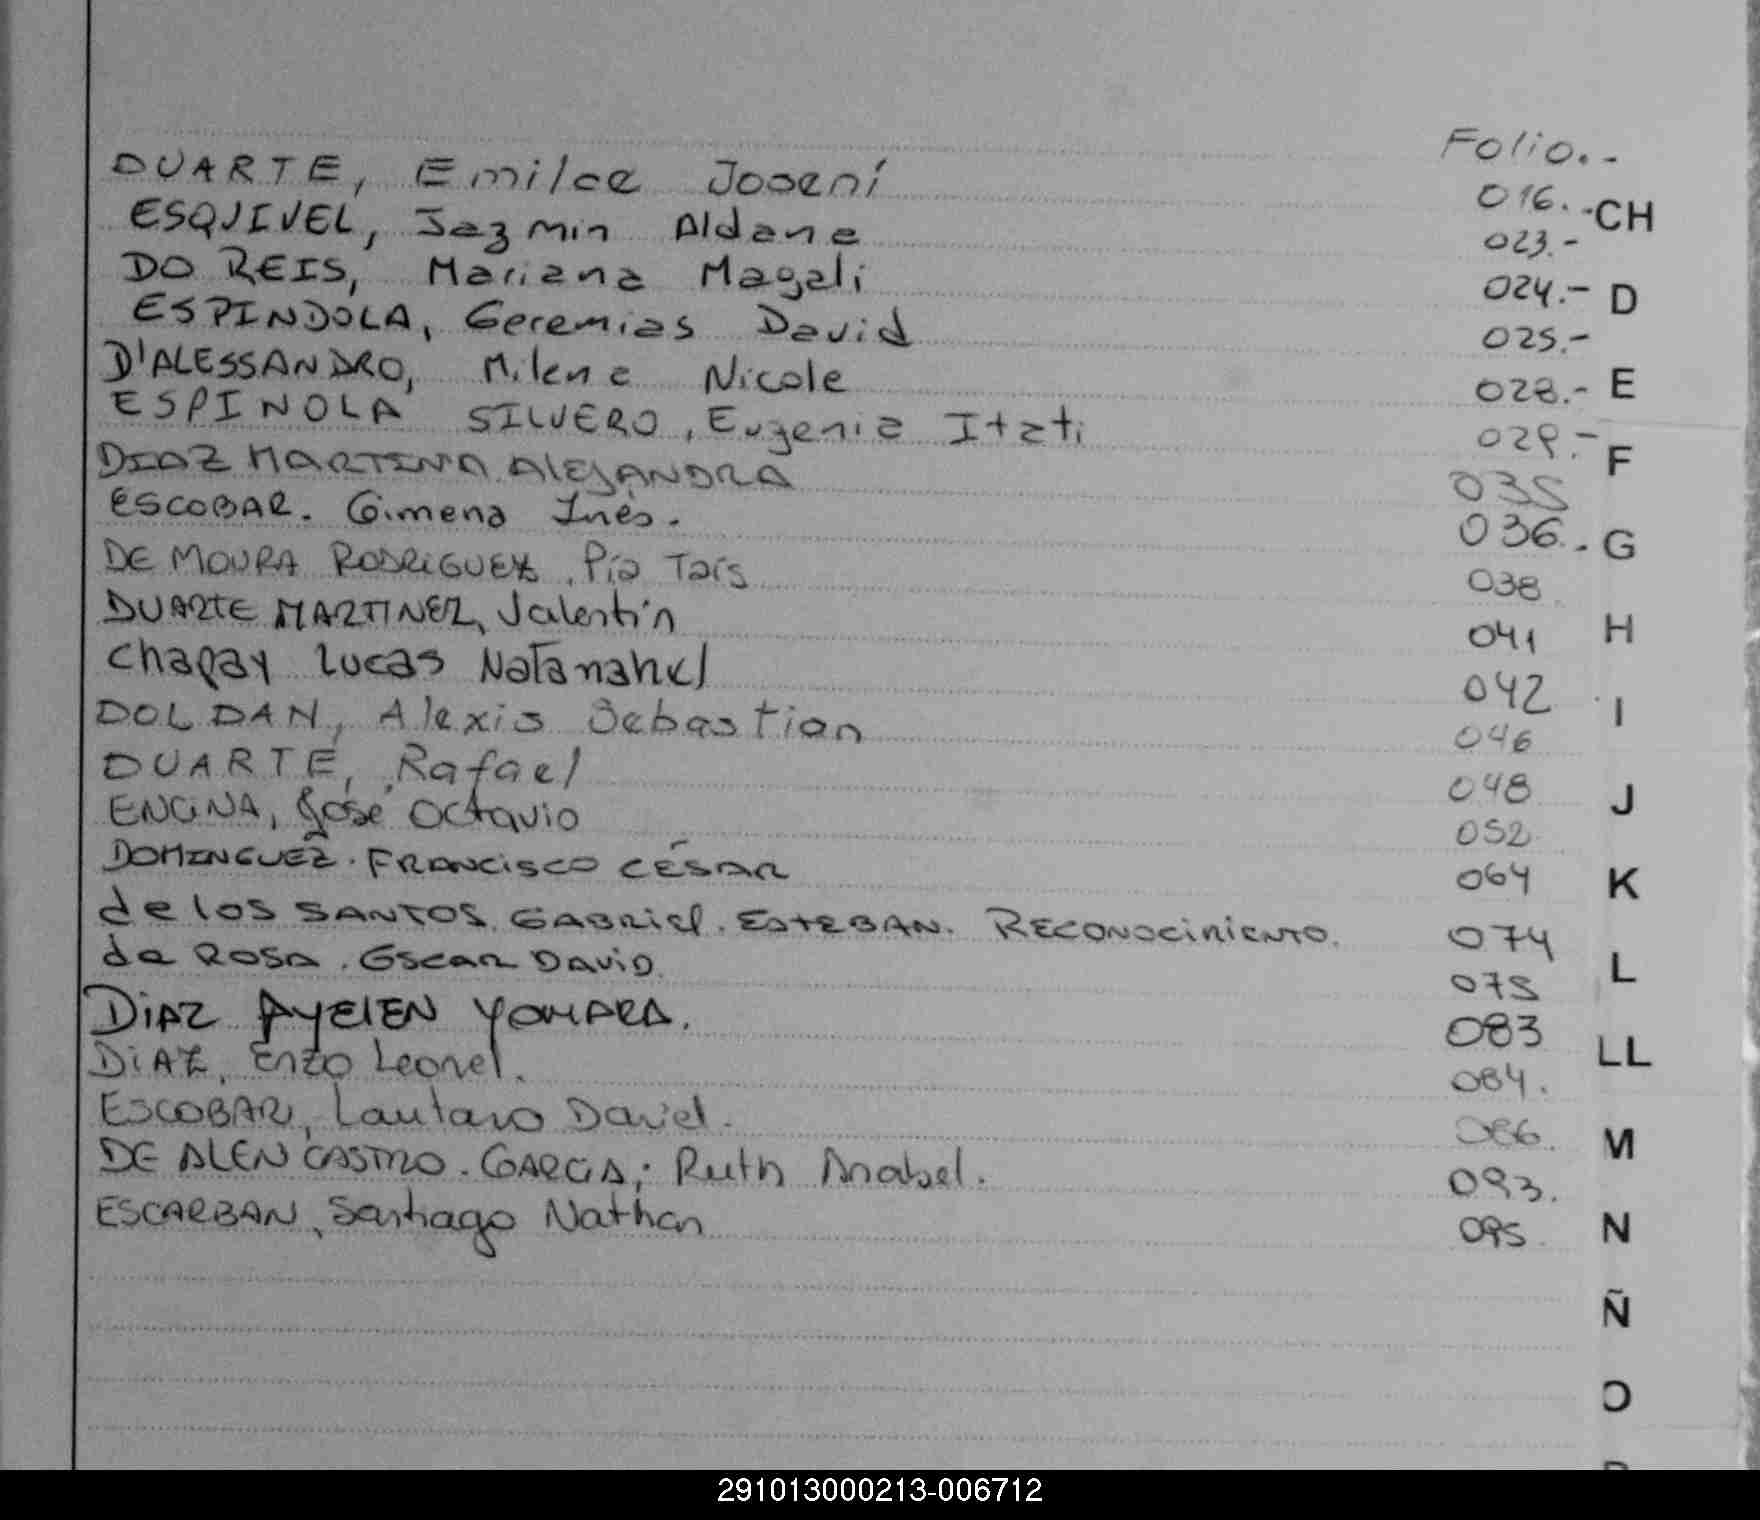 Folio.-
DUARTE, Emilce Josení 016.-
ESQUIVEL, Jazmin Aldana 023.-
DO REIS, Mariana Magali 024.-
ESPINDOLA, Geremias David 025.-
D'ALESSANDRO, Milena Nicole 028.-
ESPINOLA SILVERO, Eugenia Itati 029.-
DIAZ MARTINA ALEJANDRA 035
ESCOBAR. Gimena Inés. 036.
DE MOURA RODRIGUEZ, Pía Taís 038
DUARTE MARTINEZ, Valentín 041
Chapay Lucas Natanahel 042
DOLDAN, Alexis Sebastian 046
DUARTE, Rafael 048
ENCINA, José Octavio 052
DOMINGUEZ. FRANCISCO CÉSAR 064
de los SANTOS. GABRIEL. ESTEBAN. RECONOCIMIENTO. 074
da ROSA. OSCAR DAVID. 075
DIAZ AYELEN YOMARA. 083
DIAZ, Enzo Leonel. 084.
ESCOBAR, Lautaro Daniel. 086.
DE ALENCASTRO. GARCIA; Ruth Anabel. 093.
ESCARBAN, Santiago Nathan 095
CH
D
E
F
G
H
I
J
K
L
LL
M
N
Ñ
O
291013000213-006712